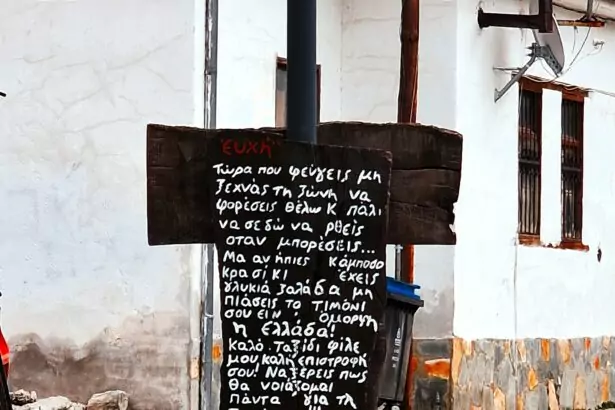 ΈΥΧΗ
Τώρα που φεύγεις μη
ξεχνάς τη ζώνη να
φορέσεις θέλω κ πάλι
να σε δώ να ρθείς
οταν μπορέσεις...
Μα αν ήπιες κάμποσο
κρασί κι έχεις
γλυκιά ζαλάδα μη
πιάσεις το τιμόνι
σου είν' όμορφη
η Ελλάδα!
καλό ταξίδι φίλε
μου καλή επιστροφή
σου! Να ξέρεις πως
θα νοιάζομαι
πάντα για τη